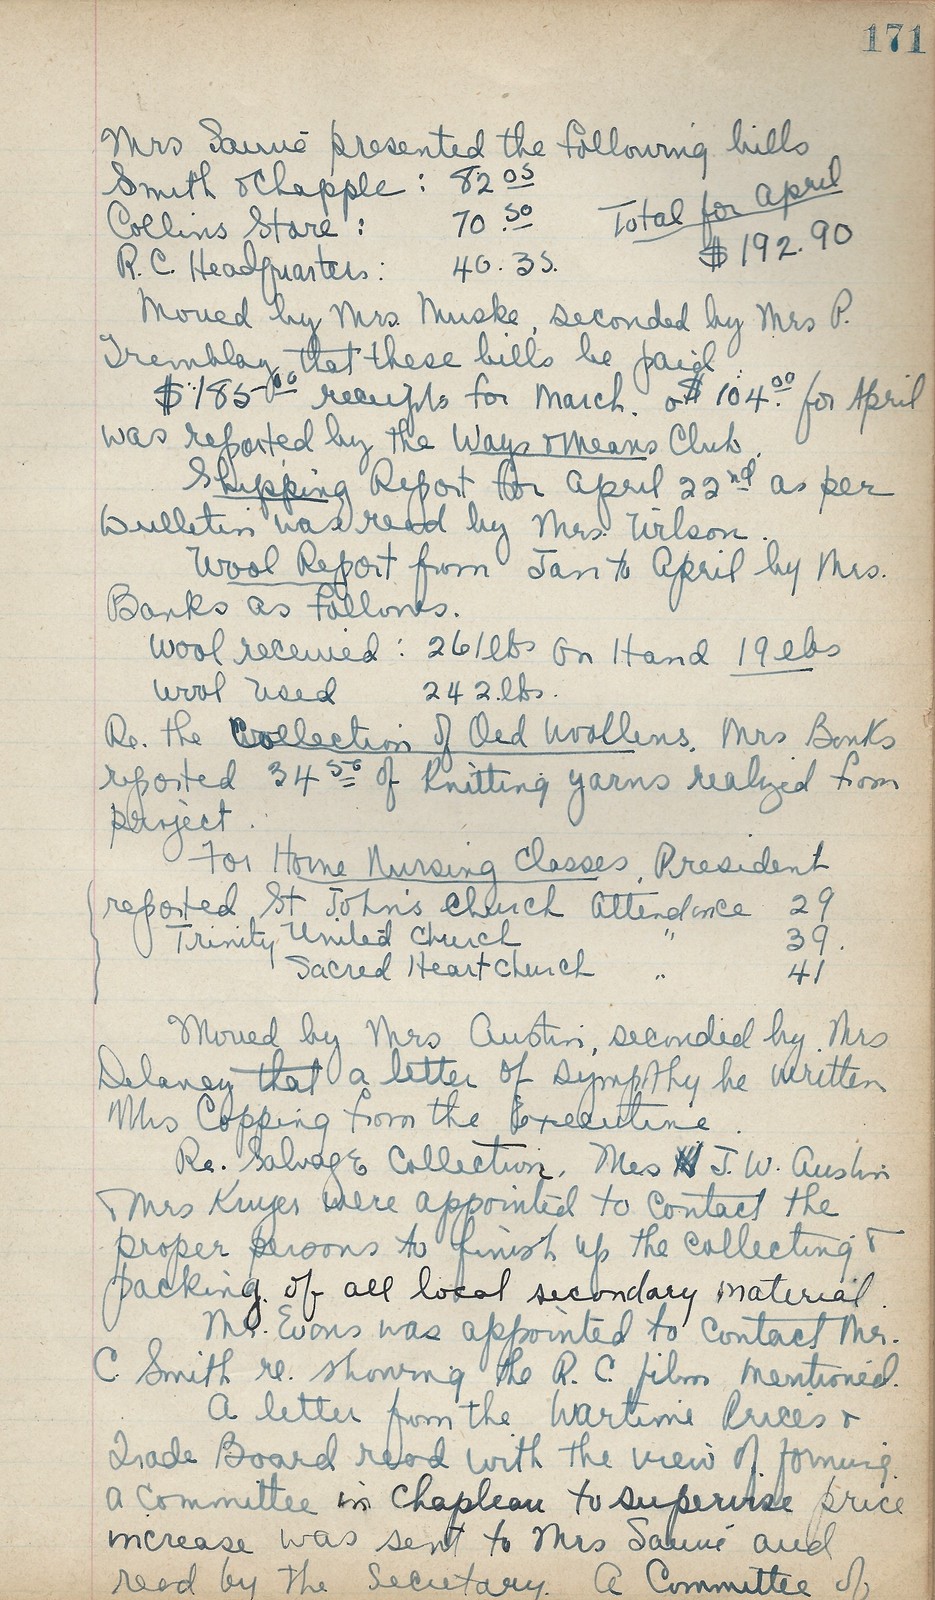 171
Mrs Sauvé presented the following bills
Smith & Chapple : 82.05
Collins Store : 70.50 Total for April
R.C. Headquarters : 40.35. $192.90
Moved by Mrs. Muske, seconded by Mrs P.
Tremblay that these bills be paid.
$185.00 receipts for March. & $104.00 for April
was reported by the Ways & Means Club.
Shipping Report for April 22nd as per
bulletin was read by Mrs. Wilson.
Wool Report from Jan to April by Mrs.
Banks as follows.
Wool received : 261 lbs On Hand 19 lbs
Wool Used 242 lbs.
Re. the Collection of Old Woollens, Mrs Banks
reported 34 50 of Knitting yarns realized from
project.
For Home Nursing Classes, President
reported St John's Church Attendance 29
Trinity United Church " 39.
Sacred Heart Church " 41
Moved by Mrs Austin, seconded by Mrs
Delaney that a letter of sympthy be written
Mrs Copping from the Executive.
Re. Salvage Collection. Mrs J. W. Austin
& Mrs Kruger were appointed to contact the
proper persons to finish up the collecting &
packing of all local secondary material.
Mr. Evans was appointed to contact Mr.
C. Smith re. showing the R. C. film mentioned.
A letter from the Wartime Prices &
Trade Board read with the view of forming
a Committee in Chapleau to supervise price
increase was sent to Mrs Sauvé and
read by the Secretary. A Committee of